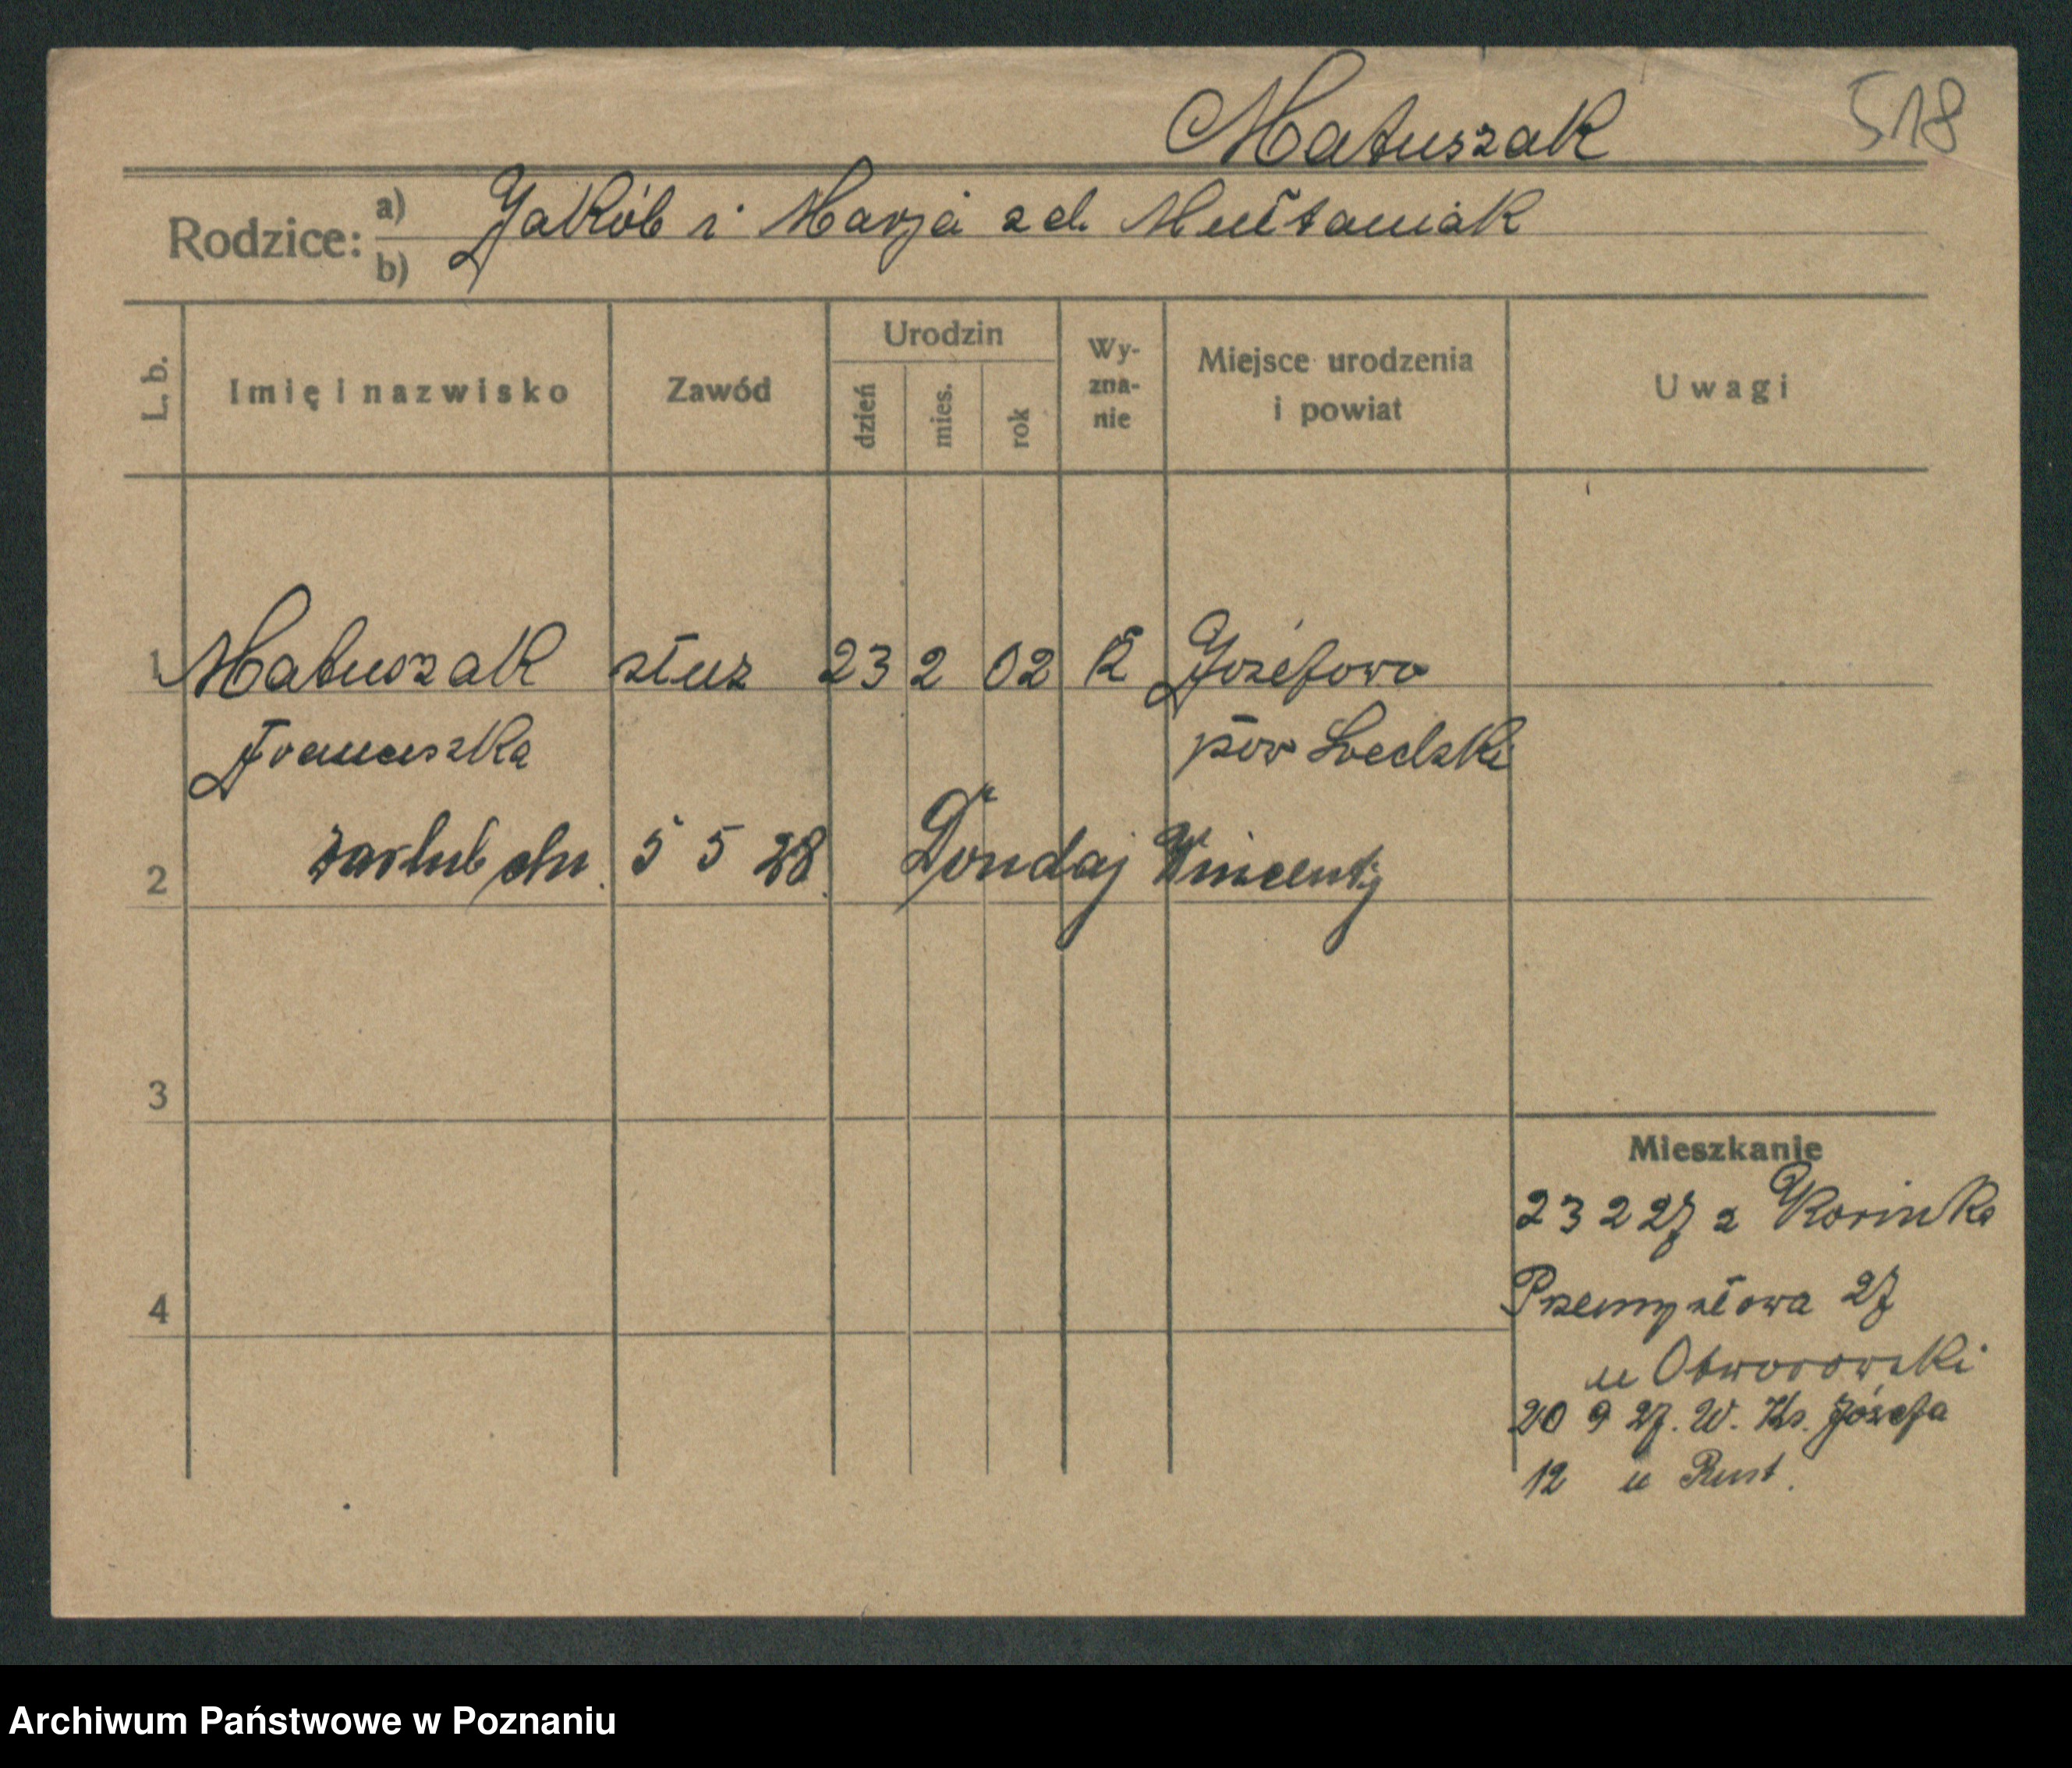 Matuszak 518
Rodzice: a) Jakób i Marja z d. Multaniak
b)
L. b. Imię i nazwisko Zawód Urodzin Wy-zna-nie Miejsce urodzenia i powiat Uwagi
dzień mies. rok
1 Matuszak służ 23 2 02 K Józefowo
Franciszka pow
2 zaślub dn. 5 5 28. Dondaj Wincenty
3
4
Mieszkanie
23 2 27 z
Przemysłowa 27
u Otworowski
20 9 27. W. Ks. Józefa
12 u Rust.
Archiwum Państwowe w Poznaniu